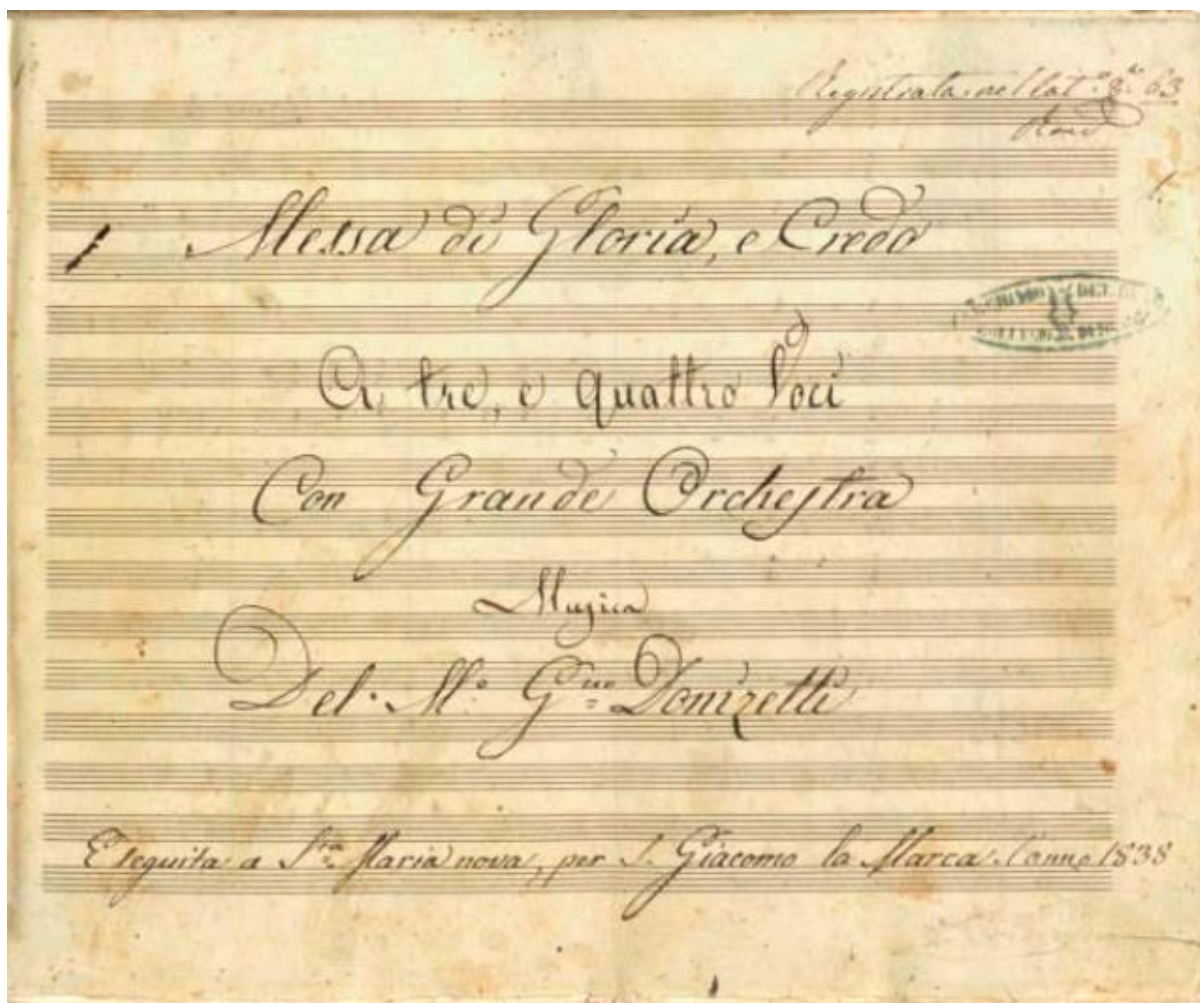 Registrata nel lat.º 8.º 63
1.
1 Messa di Gloria, e Credo
A, tre, e quattro Voci
Con Grande Orchestra
Musica
Del M.º G.no Donizetti
Eseguita a S.ta Maria nova, per S. Giacomo la Marca l'anno 1838